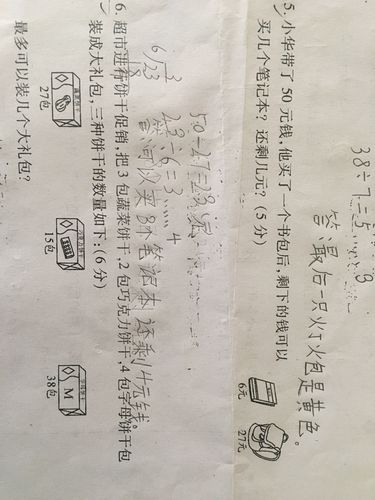 38÷7=5……3
答:最后一只灯火包是黄色。
5. 小华带了 50 元钱,他买了一个书包后,剩下的钱可以
买几个笔记本? 还剩几元? (5 分)
6元
27元
50-27=23元
23÷6=3……
4
答:可以买3个笔记本 还剩4元钱。
6
3
23
6. 超市进行饼干促销,把 3 包蔬菜饼干,2 包巧克力饼干,4 包字母饼干包
装成大礼包,三种饼干的数量如下:(6 分)
27包
15包
M
38包
最多可以装几个大礼包?